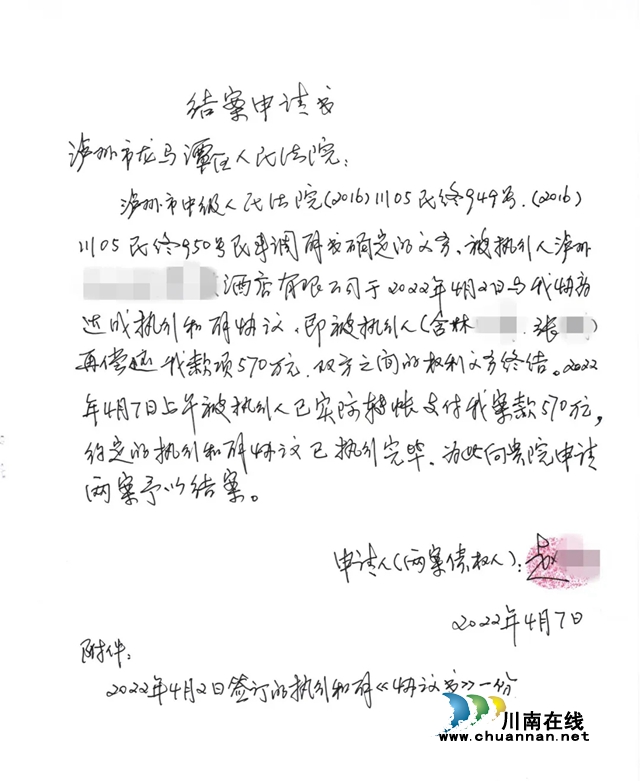 结案申请书
泸州市龙马潭区人民法院：
泸州市中级人民法院(2016)川05民终949号、(2016)
川05民终950号民事调解书确定的义务，被执行人泸州
酒店有限公司于2022年4月2日与我协商
达成执行和解协议，即被执行人(含林 、张 )
再偿还我款项570万元，双方之间的权利义务终结。2022
年4月7日上午被执行人已实际转帐支付我案款570万元，
约定的执行和解协议已执行完毕，为此向贵院申请
两案予以结案。
申请人(两案债权人)：赵
2022年4月7日
附件：
2022年4月2日签订的执行和解《协议书》一份
川南在线
www.chuannan.net